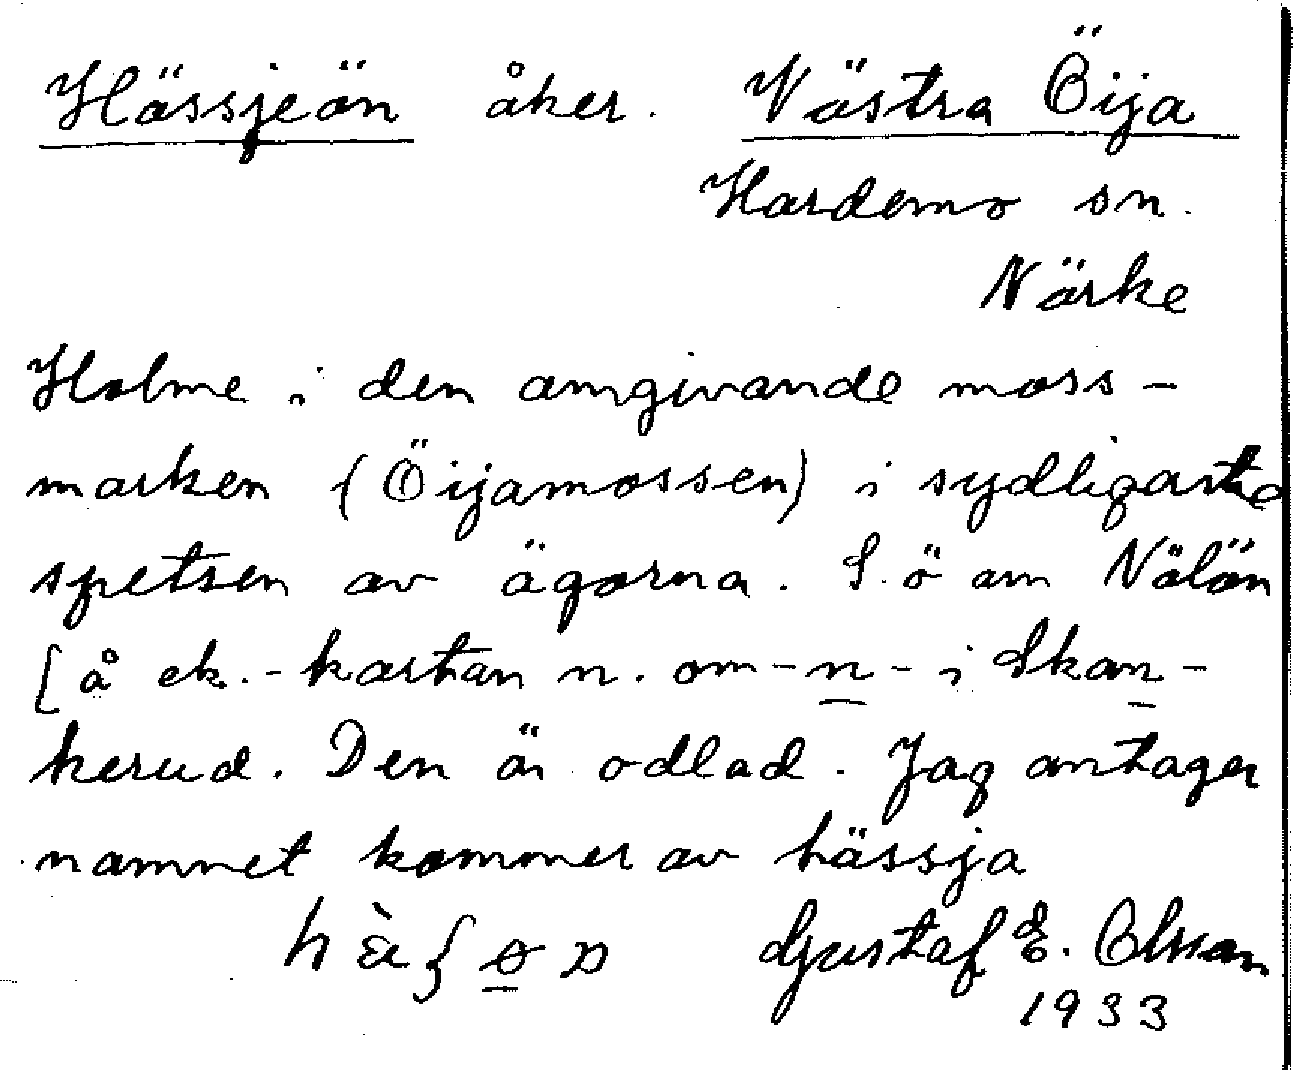 Hässjeön åker. Västra Öija
Hardemo sn.
Närke
Holme i den omgivande moss-
marken (Öijamossen) i sydligaste
spetsen av ägorna. S.ö om Nölön
[å ek.-kartan n. om -n- i Skan-
kerud. Den är odlad. Jag antager
namnet kommer av hässja
Gustaf E. Olsson
1933